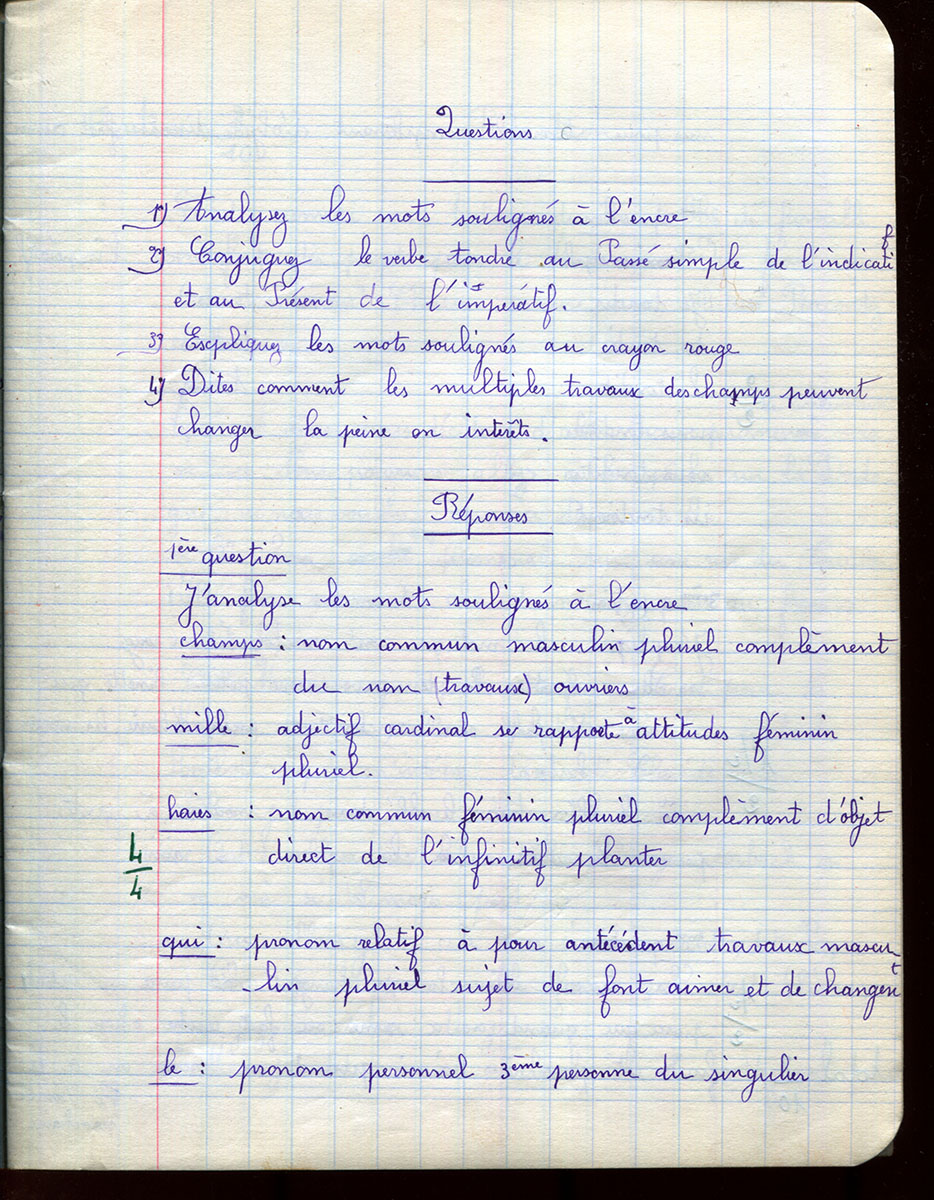 Questions
1º) Analysez les mots soulignés à l'encre
2º) Conjuguez le verbe tondre au Passé simple de l'indicatif
et au Présent de l'impératif.
3º) Escpliquez les mots soulignés au crayon rouge
4º) Dites comment les multiples travaux des champs peuvent
changer la peine on intérêts.
Réponses
1ère question
J'analyse les mots soulignés à l'encre
champs : nom commun masculin pluriel complèment
du nom (travaux) ouvriers
mille : adjectif cardinal se rapporte à attitudes féminin
pluriel.
haies : nom commun féminin pluriel complèment d'objet
direct de l'infinitif planter
4/4
qui : pronom relatif à pour antécédent travaux mascu
-lin pluriel sujet de font aimer et de changent
le : pronom personnel 3ème personne du singulier